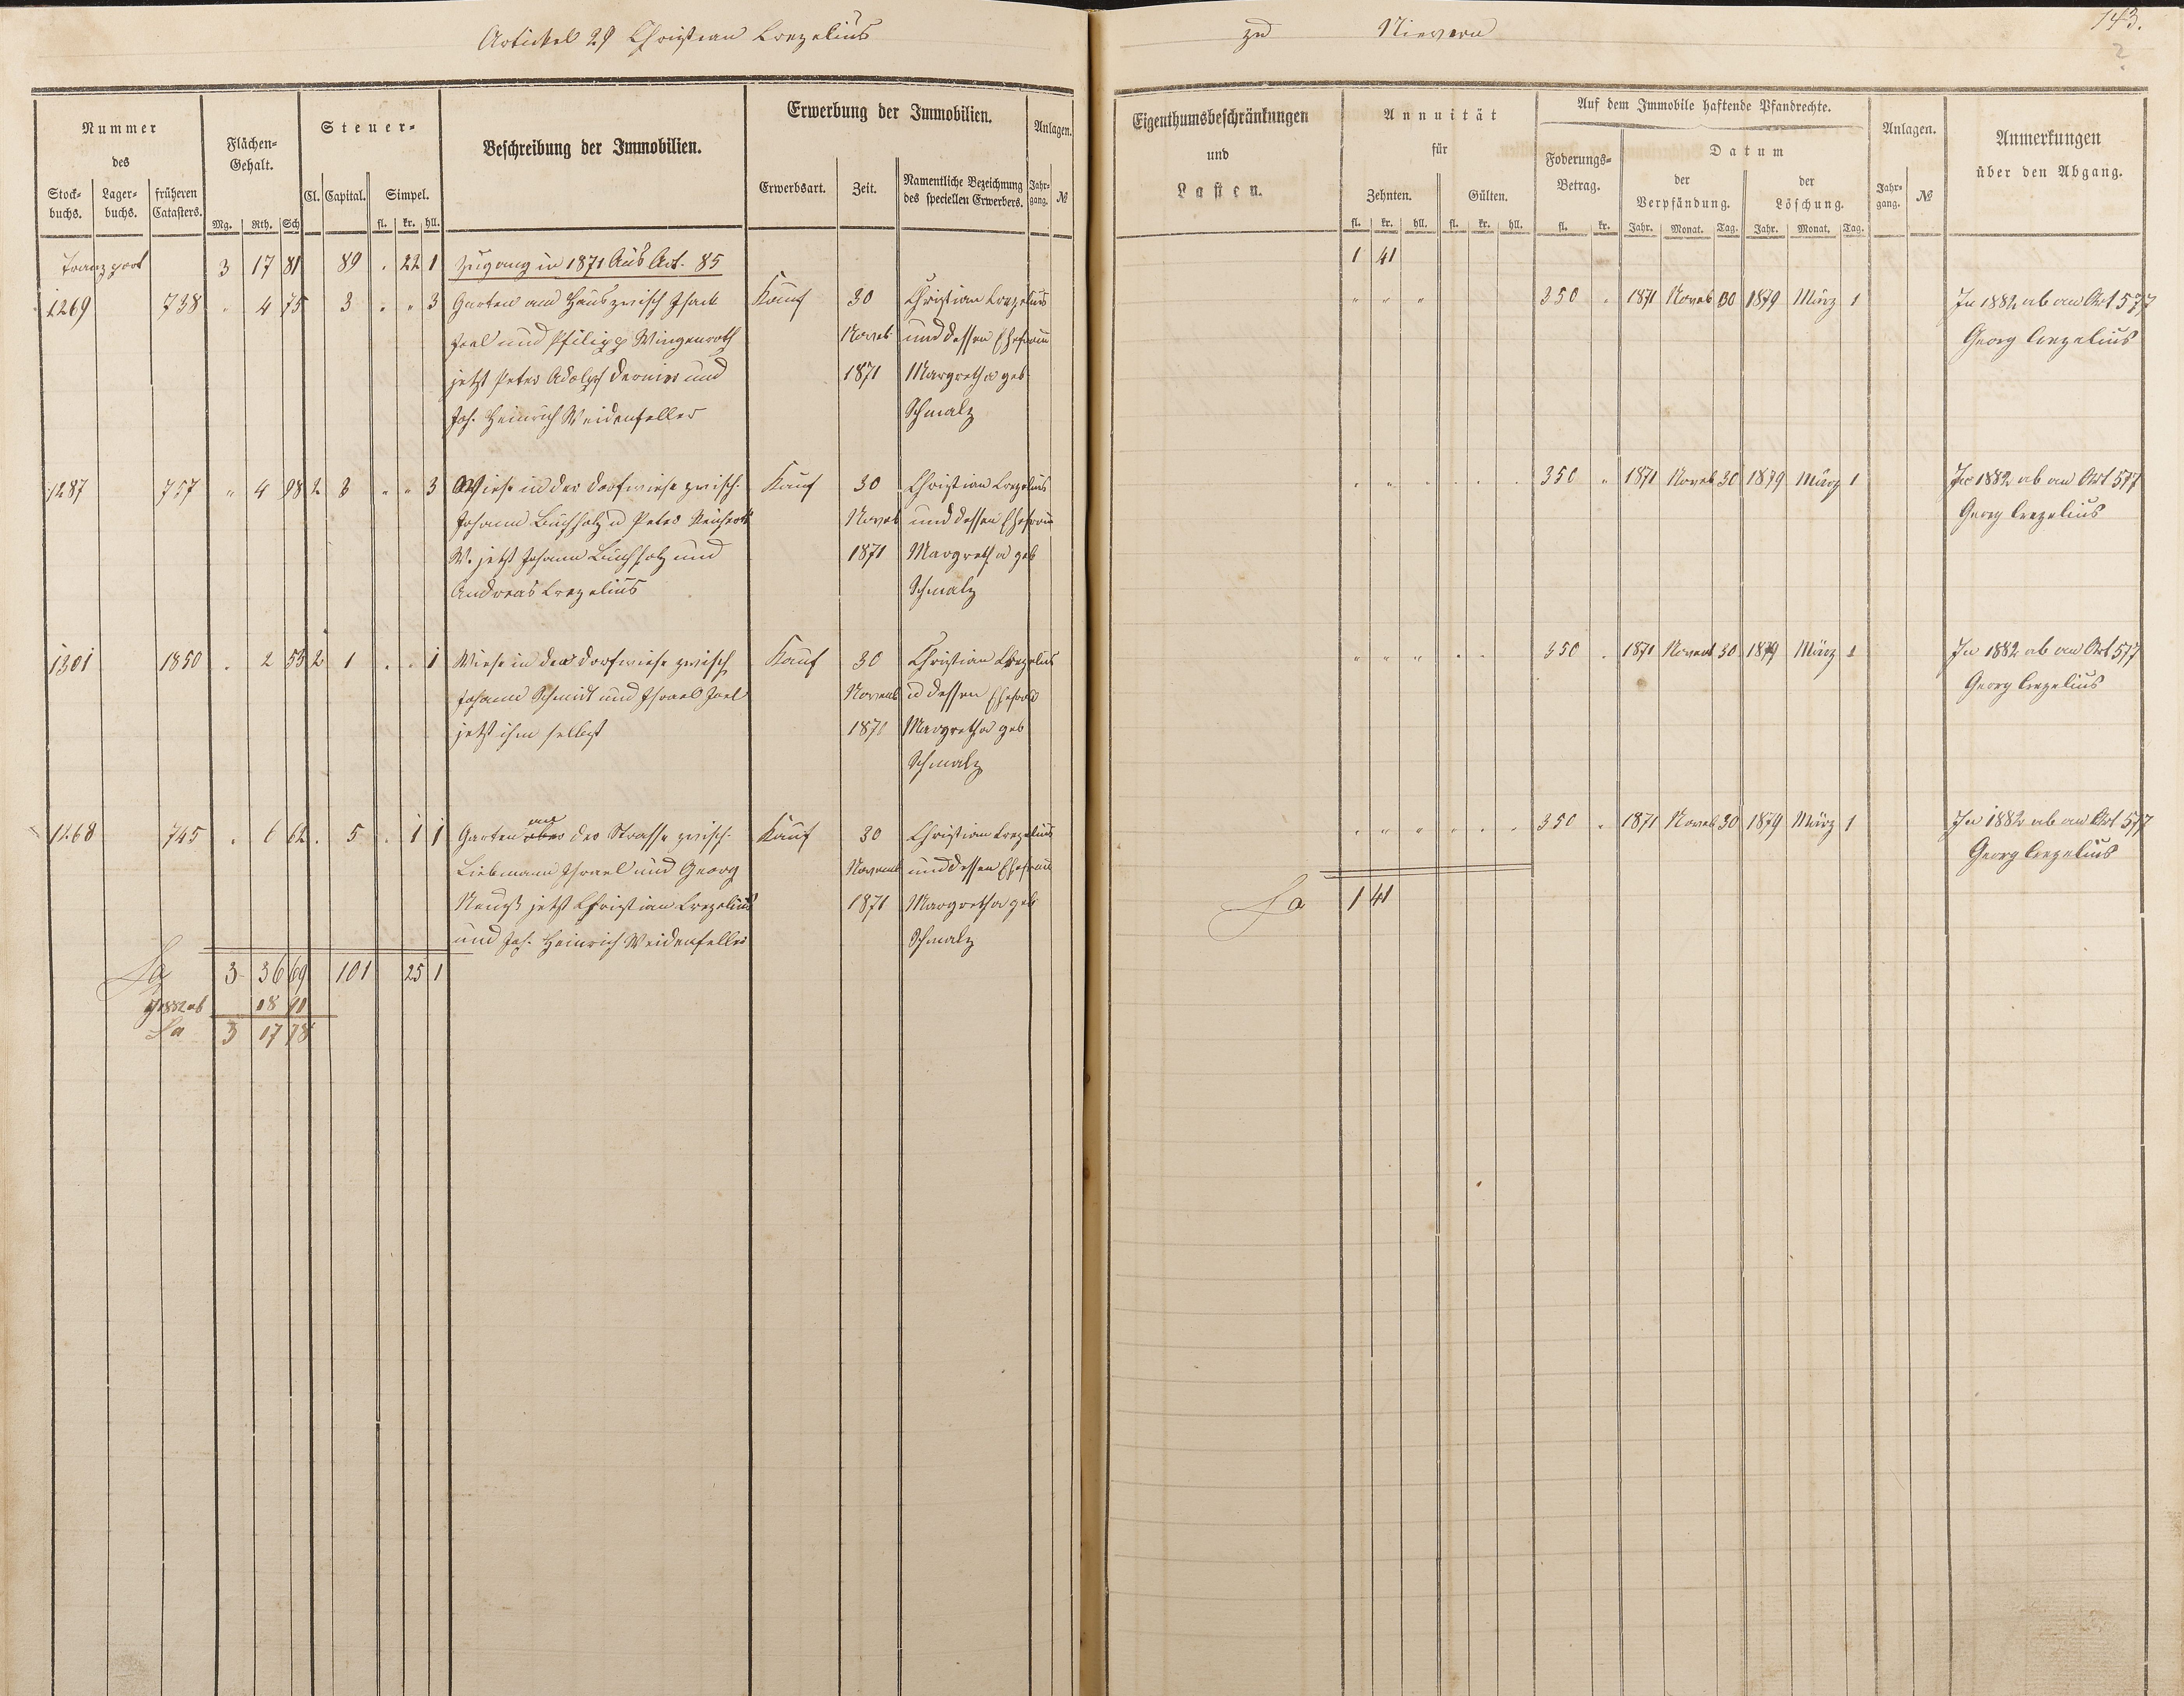 Artickel 29 Christian Crezelius
zu Nievern
143.
2
Nummer
des
Stock-
buchs.
Lager-
buchs.
früheren
Catasters.
Flächen-
Gehalt.
Mg. Rth. Sch
Steuer-
Cl. Capital. Simpel.
fl. kr. hll.
Beschreibung der Immobilien.
Erwerbung der Immobilien.
Erwerbsart. Zeit.
Namentliche Bezeichnung
des speciellen Erwerbers.
Anlagen.
Jahr-
gang. №
Eigenthumsbeschränkungen
und
Lasten.
Annuität
für
Zehnten. Gülten.
fl. kr. hll. fl. kr. hll.
Auf dem Immobile haftende Pfandrechte.
Foderungs-
Betrag.
fl. kr.
Datum
der
Verpfändung.
Jahr. Monat. Tag.
der
Löschung.
Jahr. Monat. Tag.
Anlagen.
Jahr-
gang. №
Anmerkungen
über den Abgang.
Transport 3 17 81 89 . 22 1 Zugang in 1871 Aus Art. 85 1 41
1269 738 " 4 75 3 . " 3 Garten am Haus zwisch Isack Kauf 30 Christian Crezelius " " " 350 . 1871 Noveb 30 1879 März 1 In 1882 ab an Art 577
Joel und Philipp Wingenroth Noveb und dessen Ehefrau Georg Crezelius
jetzt Peter Adolph und 1871 Margretha geb
Joh. Heinrich Weidenfeller Schmalz
1287 757 " 4 98 2 3 " " 3 Wiese in der Dorfwiese zwisch. Kauf 30 Christian Crezelius . " . . . . 350 " 1871 Noveb 30 1879 März 1 In 1882 ab an Art 577
Johann Buchholz u Peter Noveb und dessen Ehefrau Georg Crezelius
W. jetzt Johann Buchholz und 1871 Margretha geb
Andreas Crezelius Schmalz
1301 1850 . 2 53 2 1 . . 1 Wiese in der Dorfwiese zwisch Kauf 30 Christian Crezelius " " " . . 350 . 1871 Novemb 30 1879 März 1 In 1882 ab an Art 577
Johann Schmidt und Israel Joel Novemb u dessen Ehefrau Georg Crezelius
jetzt ihm selbst 1871 Margretha geb
Schmalz
1268 745 . 6 62 . 5 . 1 1 Garten ober der Strasse zwisch. Kauf 30 Christian Crezelius . " " . . . 350 . 1871 Noveb 30 1879 März 1 In 1882 ab an Art 577
Liebmann Israel und Georg Novemb und dessen Ehefrau Georg Crezelius
jetzt Christian Crezelius 1871 Margretha geb Sa 1 41
und Joh. Heinrich Weidenfeller Schmalz
Sa 3 36 69 101 25 1
In 1882 ab 18 91
Sa 3 17 78